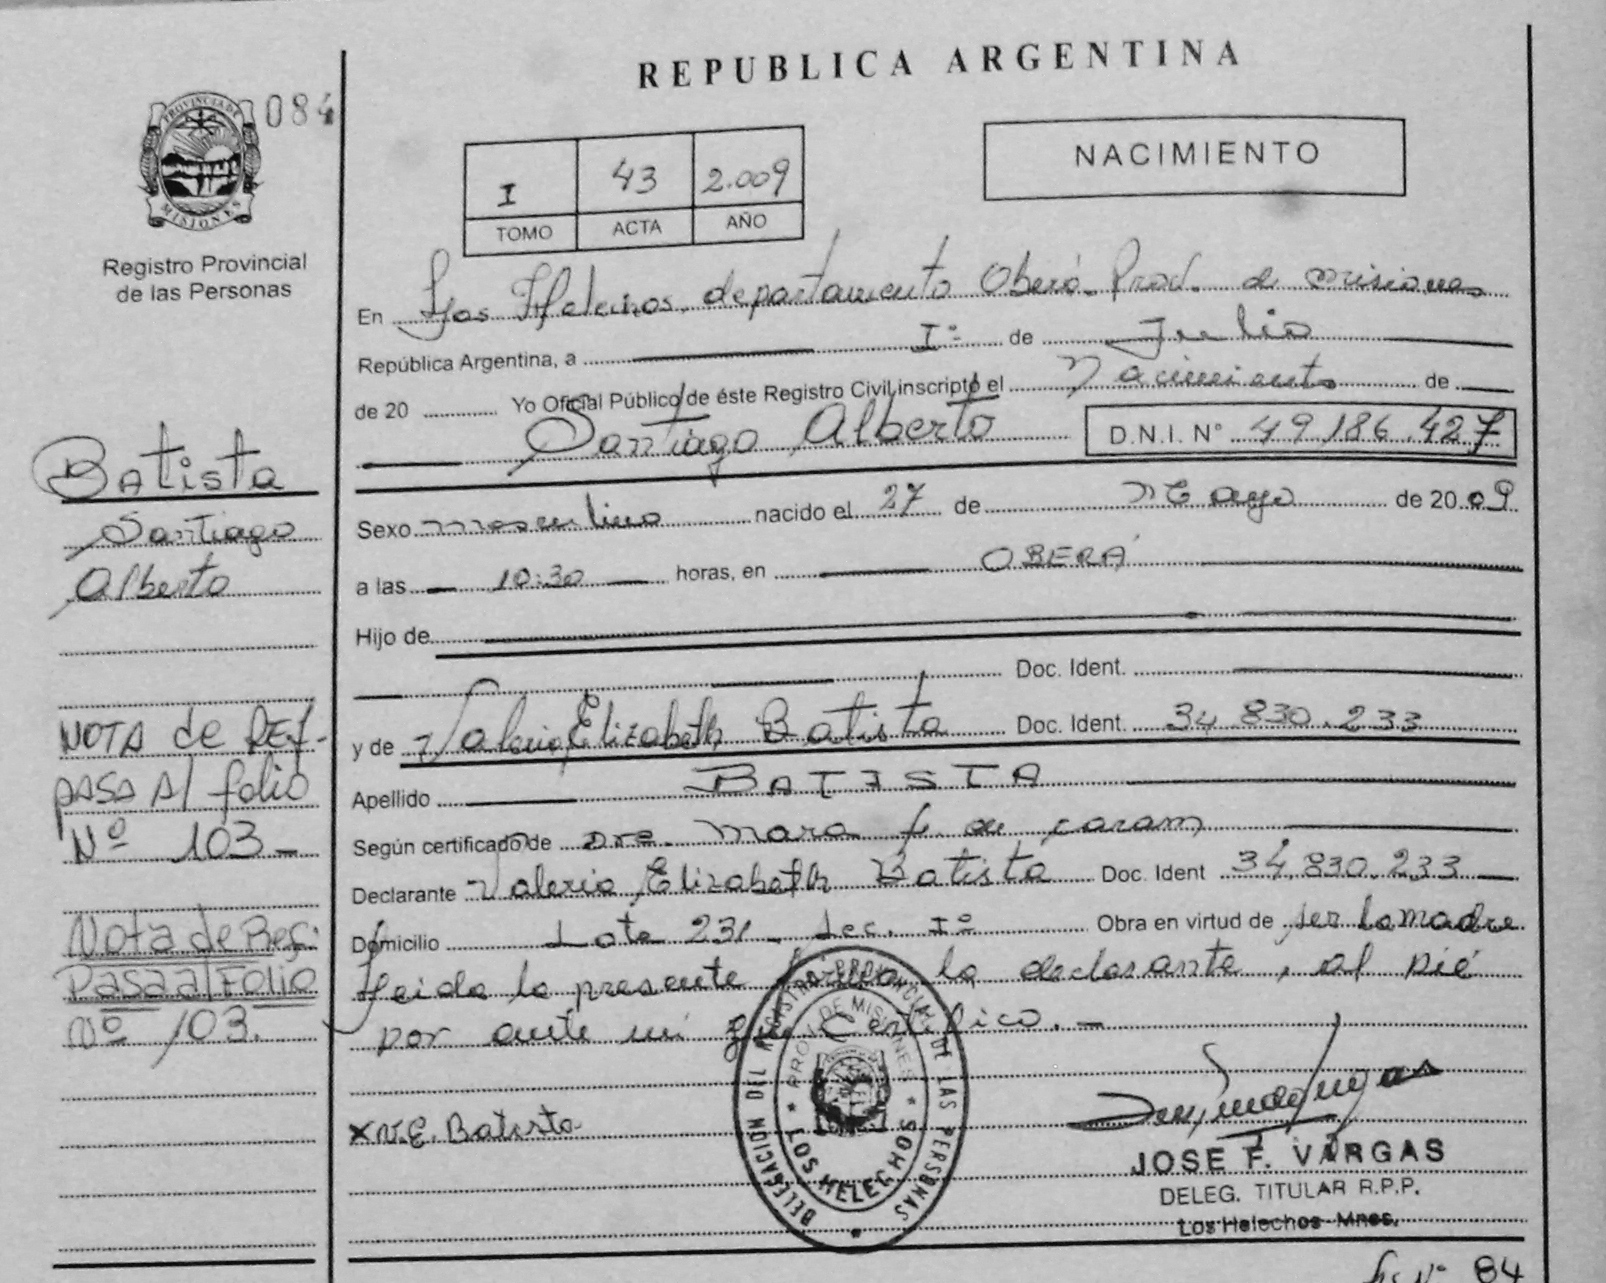 REPUBLICA ARGENTINA
PROVINCIA DE MISIONES
084
Registro Provincial
de las Personas
I 43 2.009
TOMO ACTA AÑO
NACIMIENTO
En Los Helechos, departamento Oberá - Prov. de misiones
República Argentina, a I° de Julio
de 20 Yo Oficial Público de éste Registro Civil inscripto el Nacimiento de
Santiago Alberto D.N.I. N° 49.186.427
Batista
Santiago
Alberto
Sexo masculino nacido el 27 de Mayo de 20.09
a las 10:30 horas, en OBERÁ
Hijo de
Doc. Ident.
y de Valeria Elizabeth Batista Doc. Ident. 34.830.233
Apellido BATISTA
Según certificado de Dra. Mara de
Declarante Valeria Elizabeth Batista Doc. Ident 34.830.233
Domicilio Lote 231 - Sec. I° Obra en virtud de ser la madre
Leida la presente firma la declarante, al pié
por ante mi que Certifico. -
NOTA de REF-
PASA Al folio
Nº 103 -
Nota de Ref:
Pasa al Folio
Nº 103.
x V.E. Batista
DELEGACION DEL REGISTRO PROVINCIAL DE LAS PERSONAS
PROV. DE MISIONES
LOS HELECHOS
JOSE F. VARGAS
DELEG. TITULAR R.P.P.
Los Helechos - Mnes.
Nº 84